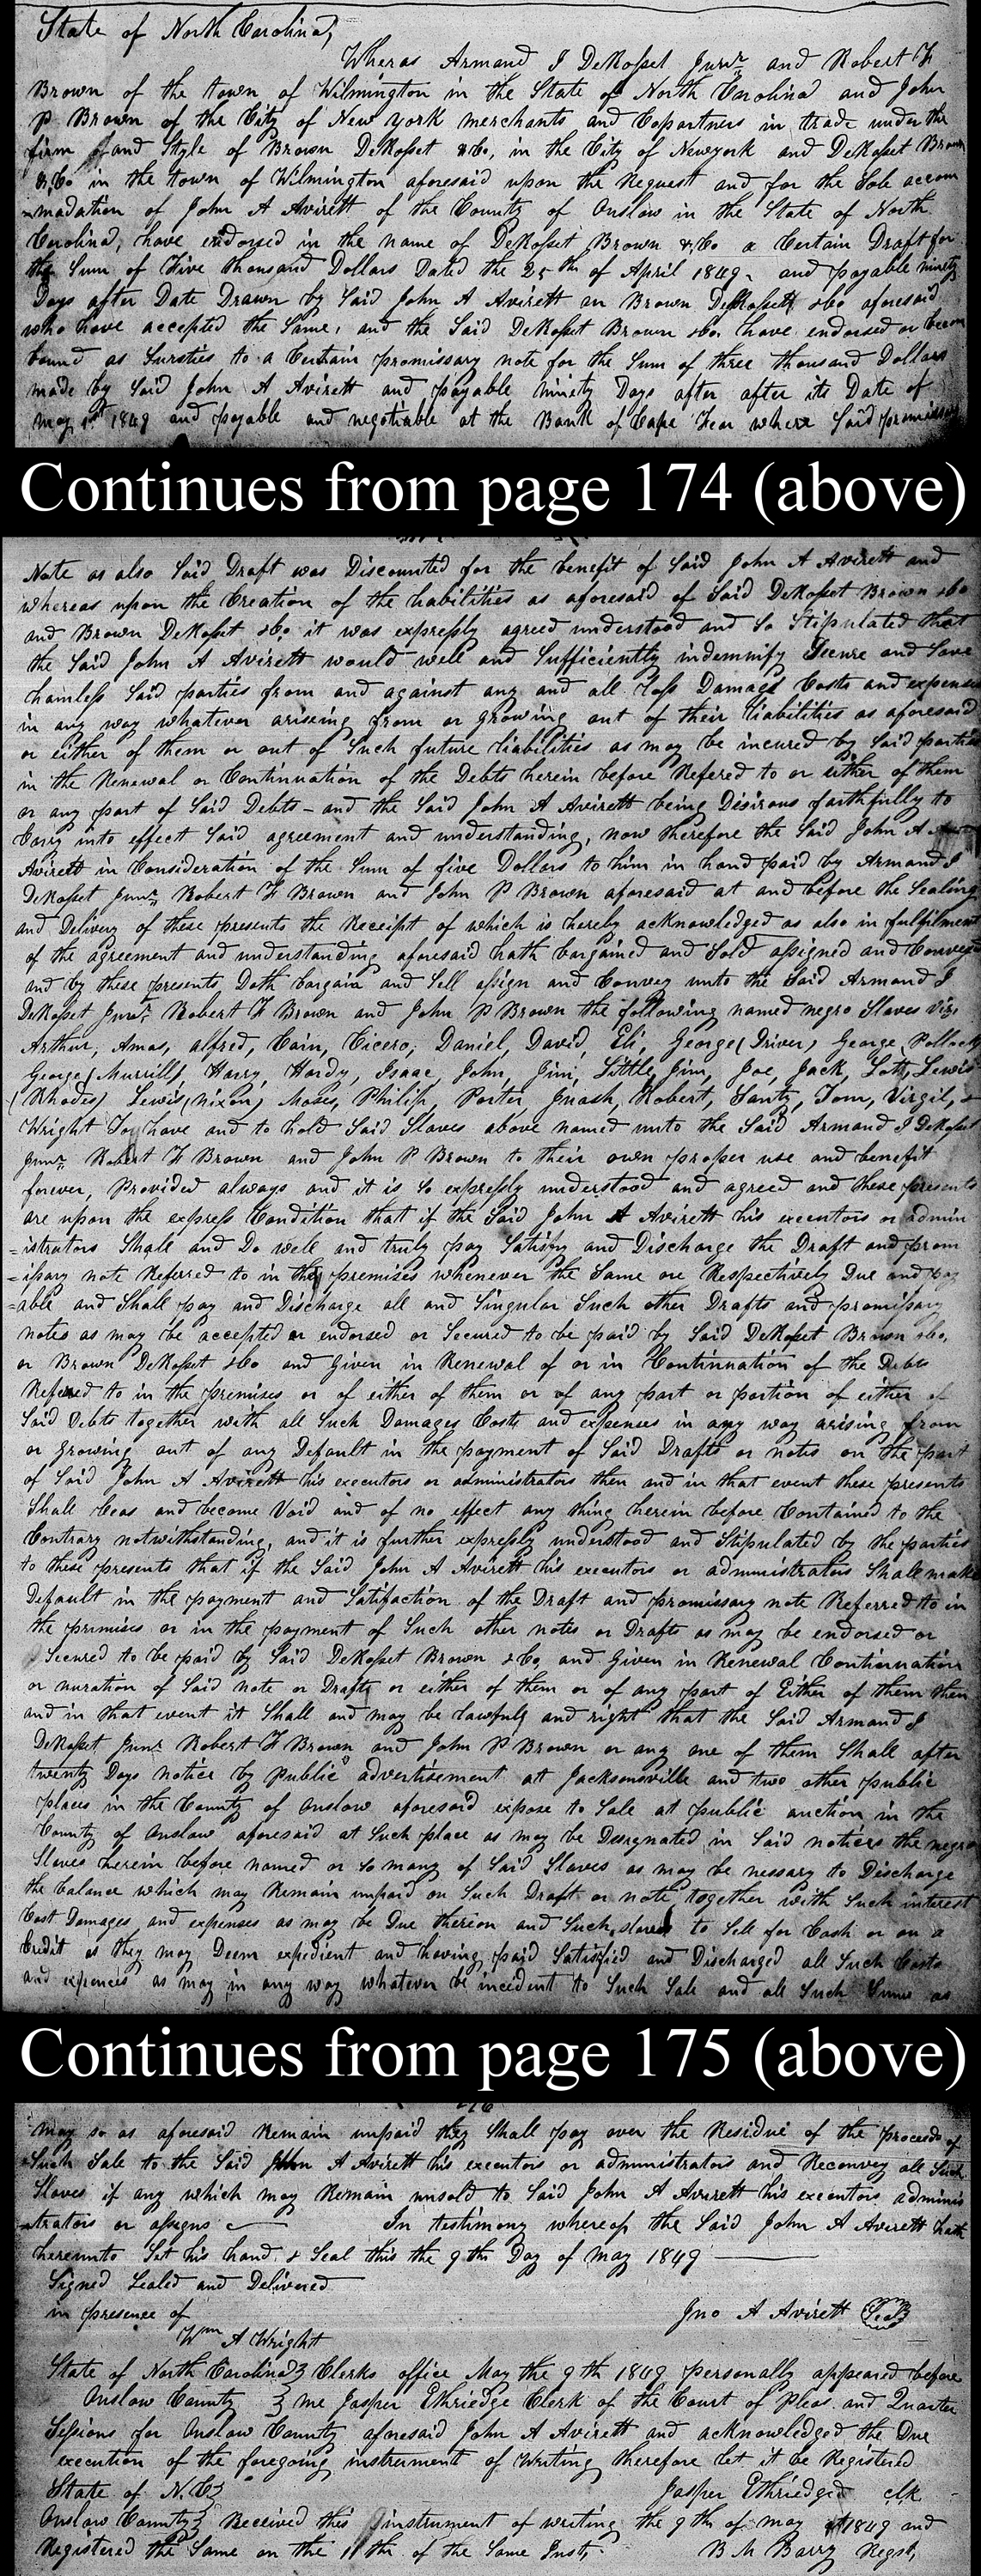 State of North Carolina,
Wheras Armand J DeRosset Junr and Robert F
Brown of the town of Wilmington in the State of North Carolina and John
P Brown of the City of New york merchants and Copartners in trade under the
firm and Style of Brown DeRosset &Co, in the City of Newyork and DeRosset Brown
&Co in the town of Wilmington aforesaid upon the Request and for the Sole accom
=madation of John A Avirett of the County of Onslow in the State of North
Carolina, have endorsed in the name of DeRosset Brown &Co a Certain Draft for
the Sum of Five thousand Dollars Dated the 25th of April 1849, and payable ninety
Days after Date Drawn by Said John A Avirett on Brown DeRossett &Co aforesaid
who have accepted the Same, and the Said DeRosset Brown &Co. have endorsed or becom
bound as Sursties to a Certain promissary note for the Sum of three thousand Dollars
made by Said John A Avirett and payable ninety Days after after its Date of
may 1st 1849 and payable and negotiable at the Bank of Cape Fear where Said promissary
Continues from page 174 (above)
Note as also Said Draft was Discounted for the benefit of Said John A Avirett and
whereas upon the Creation of the liabilities as aforesaid of Said DeRosset Brown &Co
and Brown DeRosset &Co it was expressly agreed understood and So Stipulated that
the Said John A Avirett would well and Sufficiently indemnify Secure and Save
hamless Said parties from and against any and all Loss Damage Costs and expenses
in any way whatever arising from or growing out of their liabilities as aforesaid
or either of them or out of Such future liabilities as may be incured by Said parties
in the Renewal or Continuation of the Debts herein before Refered to or either of them
or any part of Said Debts - and the Said John A Avirett being Desirous faithfully to
Carry into effect Said agreement and understanding, now therefore the Said John A
Avirett in Consideration of the Sum of five Dollars to him in hand paid by Armand J
DeRosset Junr, Robert F Brown and John P Brown aforesaid at and before the Sealing
and Delivery of these presents the Receipt of which is hereby acknowledged as also in fulfilment
of the agreement and understanding aforesaid hath bargained and Sold assigned and Conveyed
and by these presents Doth bargain and Sell assign and Convey unto the Said Armand J
DeRosset Junr, Robert F Brown and John P Brown the following named negro Slaves Viz,
Arthur, Amos, alfred, Cain, Cicero, Daniel, David, Eli, George (Driver) George Pollock
George (Murrill), Harry, Hardy, Isaac, John, Jim, Little Jim, Joe, Jack, Lott, Lewis
(Rhodes) Lewis (Nixon) Moses, Philip, Porter, Quash, Robert, Santy, Tom, Virgil, &
Wright To have and to hold Said Slaves above named unto the Said Armand J DeRosset
Junr, Robert F Brown and John P Brown to their own proper use and benefit
forever, Provided always and it is So expressly understood and agreed and these presents
are upon the express Condition that if the Said John A Avirett his executors or admin
=istrators Shall and Do well and truly pay Satisfy and Discharge the Draft and prom
=issary note Referred to in the premises whenever the Same are Respectively Due and pay
=able and Shall pay and Discharge all and Singular Such other Drafts and promissary
notes as may be accepted or endorsed or Secured to be paid by Said DeRosset Brown &Co,
or Brown DeRosset &Co and Given in Renewal of or in Continuation of the Debts
Refered to in the premises or of either of them or of any part or portion of either of
Said Debts together with all Such Damages Costs and expenses in any way arising from
or growing out of any Default in the payment of Said Drafts or notes on the part
of Said John A Avirett his executors or administrators then and in that event these presents
Shall Ceas and become Void and of no effect any thing herein before Contained to the
Contrary notwithstanding, and it is further expressly understood and Stipulated by the parties
to these presents that if the Said John A Avirett his executors or administrators Shall make
Default in the payment and Satifaction of the Draft and promissary note Referred to in
the primises or in the payment of Such other notes or Drafts as may be endorsed or
Secured to be paid by Said DeRosset Brown &Co, and Given in Renewal Continuation
or nuration of Said note or Drafts or either of them or of any part of Either of them then
and in that event it Shall and may be lawfuly and right that the Said Armand J
DeRosset Junr Robert F Brown and John P Brown or any one of them Shall after
twenty Days notice by Public advertisement at Jacksonsville and two other public
places in the County of Onslow aforesaid expose to Sale at public auction in the
County of Onslow aforesaid at Such place as may be Designated in Said notices the negro
Slaves herein before named or So many of Said Slaves as may be nessary to Discharge
the balance which may Remain unpaid on Such Draft or note together with Such interest
Cost Damages, and expenses as may be Due therion and Such slaves to Sell for Cash or on a
Credit as they may Deem expedient and having paid Satisfied and Discharged all Such Costs
and expences as may in any way whatever be incident to Such Sale and all Such Sums as
Continues from page 175 (above)
may so as aforesaid Remain unpaid they Shall pay over the Residue of the proceeds of
Such Sale to the Said John A Avirett his executors or administrators and Reconvey all Such
Slaves if any which may Remain unsold to Said John A Avirett his executors adminis
=trators or assigns In testimony whereof the Said John A Averett hath
hereunto Set his hand & Seal this the 9th Day of may 1849
Signed Sealed and Delivered
in presence of Jno A Avirett Seal
Wm A Wright
State of North Carolina } Clerks office May the 9th 1849 personally appeared before
Onslow County } me Jasper Ethriedge Clerk of the Court of Pleas and Quarter
Sessions for Onslow County aforesaid John A Avirett and acknowledged the Due
execution of the foregoing instrument of Writing therefore let it be Registered
State of N.C } Jasper Ethriedge clk
Onslow County } Received this instrument of writing the 9th of may 1849 and
Registered the Same on the 11th of the Same Inst, B M Barry Regst,